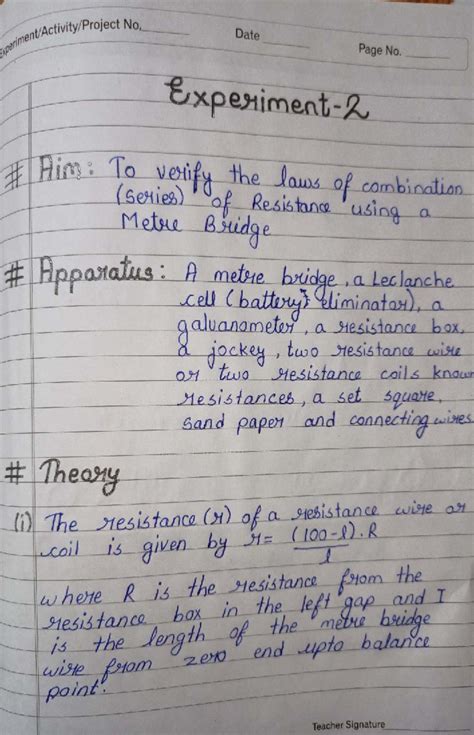 Experiment/Activity/Project No.
Date
Page No.
Experiment-2
# Aim: To verify the laws of combination
(series) of Resistance using a
Metre Bridge
# Apparatus: A metre bridge, a Leclanche
cell (battery eliminator), a
galvanometer, a resistance box,
a jockey, two resistance wire
or two resistance coils known
resistances, a set square,
sand paper and connecting wires
# Theory
(i) The resistance (r) of a resistance wire or
coil is given by r= (100-l).R
l
where R is the resistance from the
resistance box in the left gap and I
is the length of the metre bridge
wire from zero end upto balance
point.
Teacher Signature